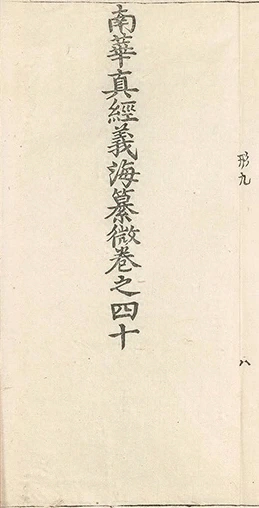 形九
八
南華真經義海纂微卷之四十